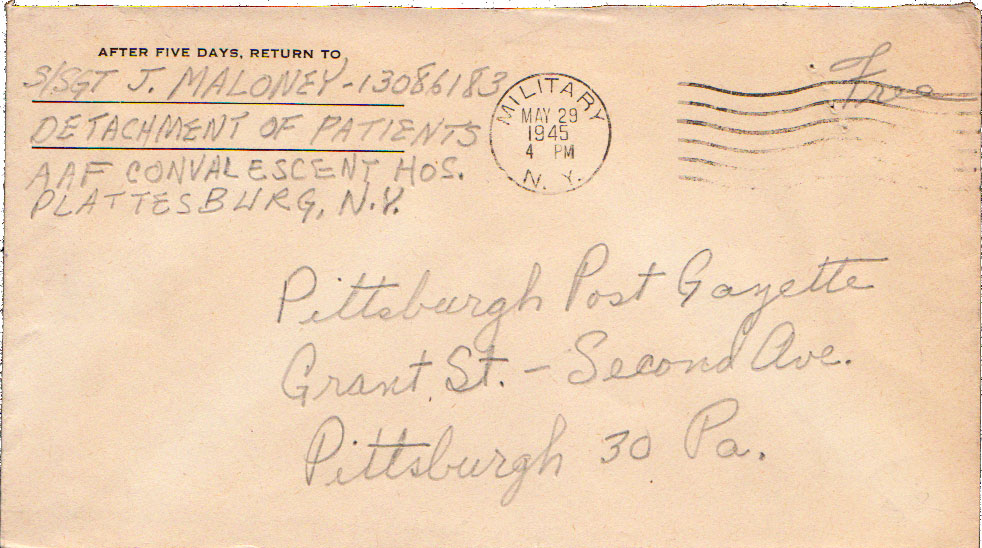 AFTER FIVE DAYS, RETURN TO
S/SGT J. MALONEY-13086183
DETACHMENT OF PATIENTS
AAF CONVALESCENT HOS.
PLATTESBURG, N.Y.
MILITARY
MAY 29
1945
4 PM
N. Y.
Free
Pittsburgh Post Gazette
Grant St. - Second Ave.
Pittsburgh 30 Pa.